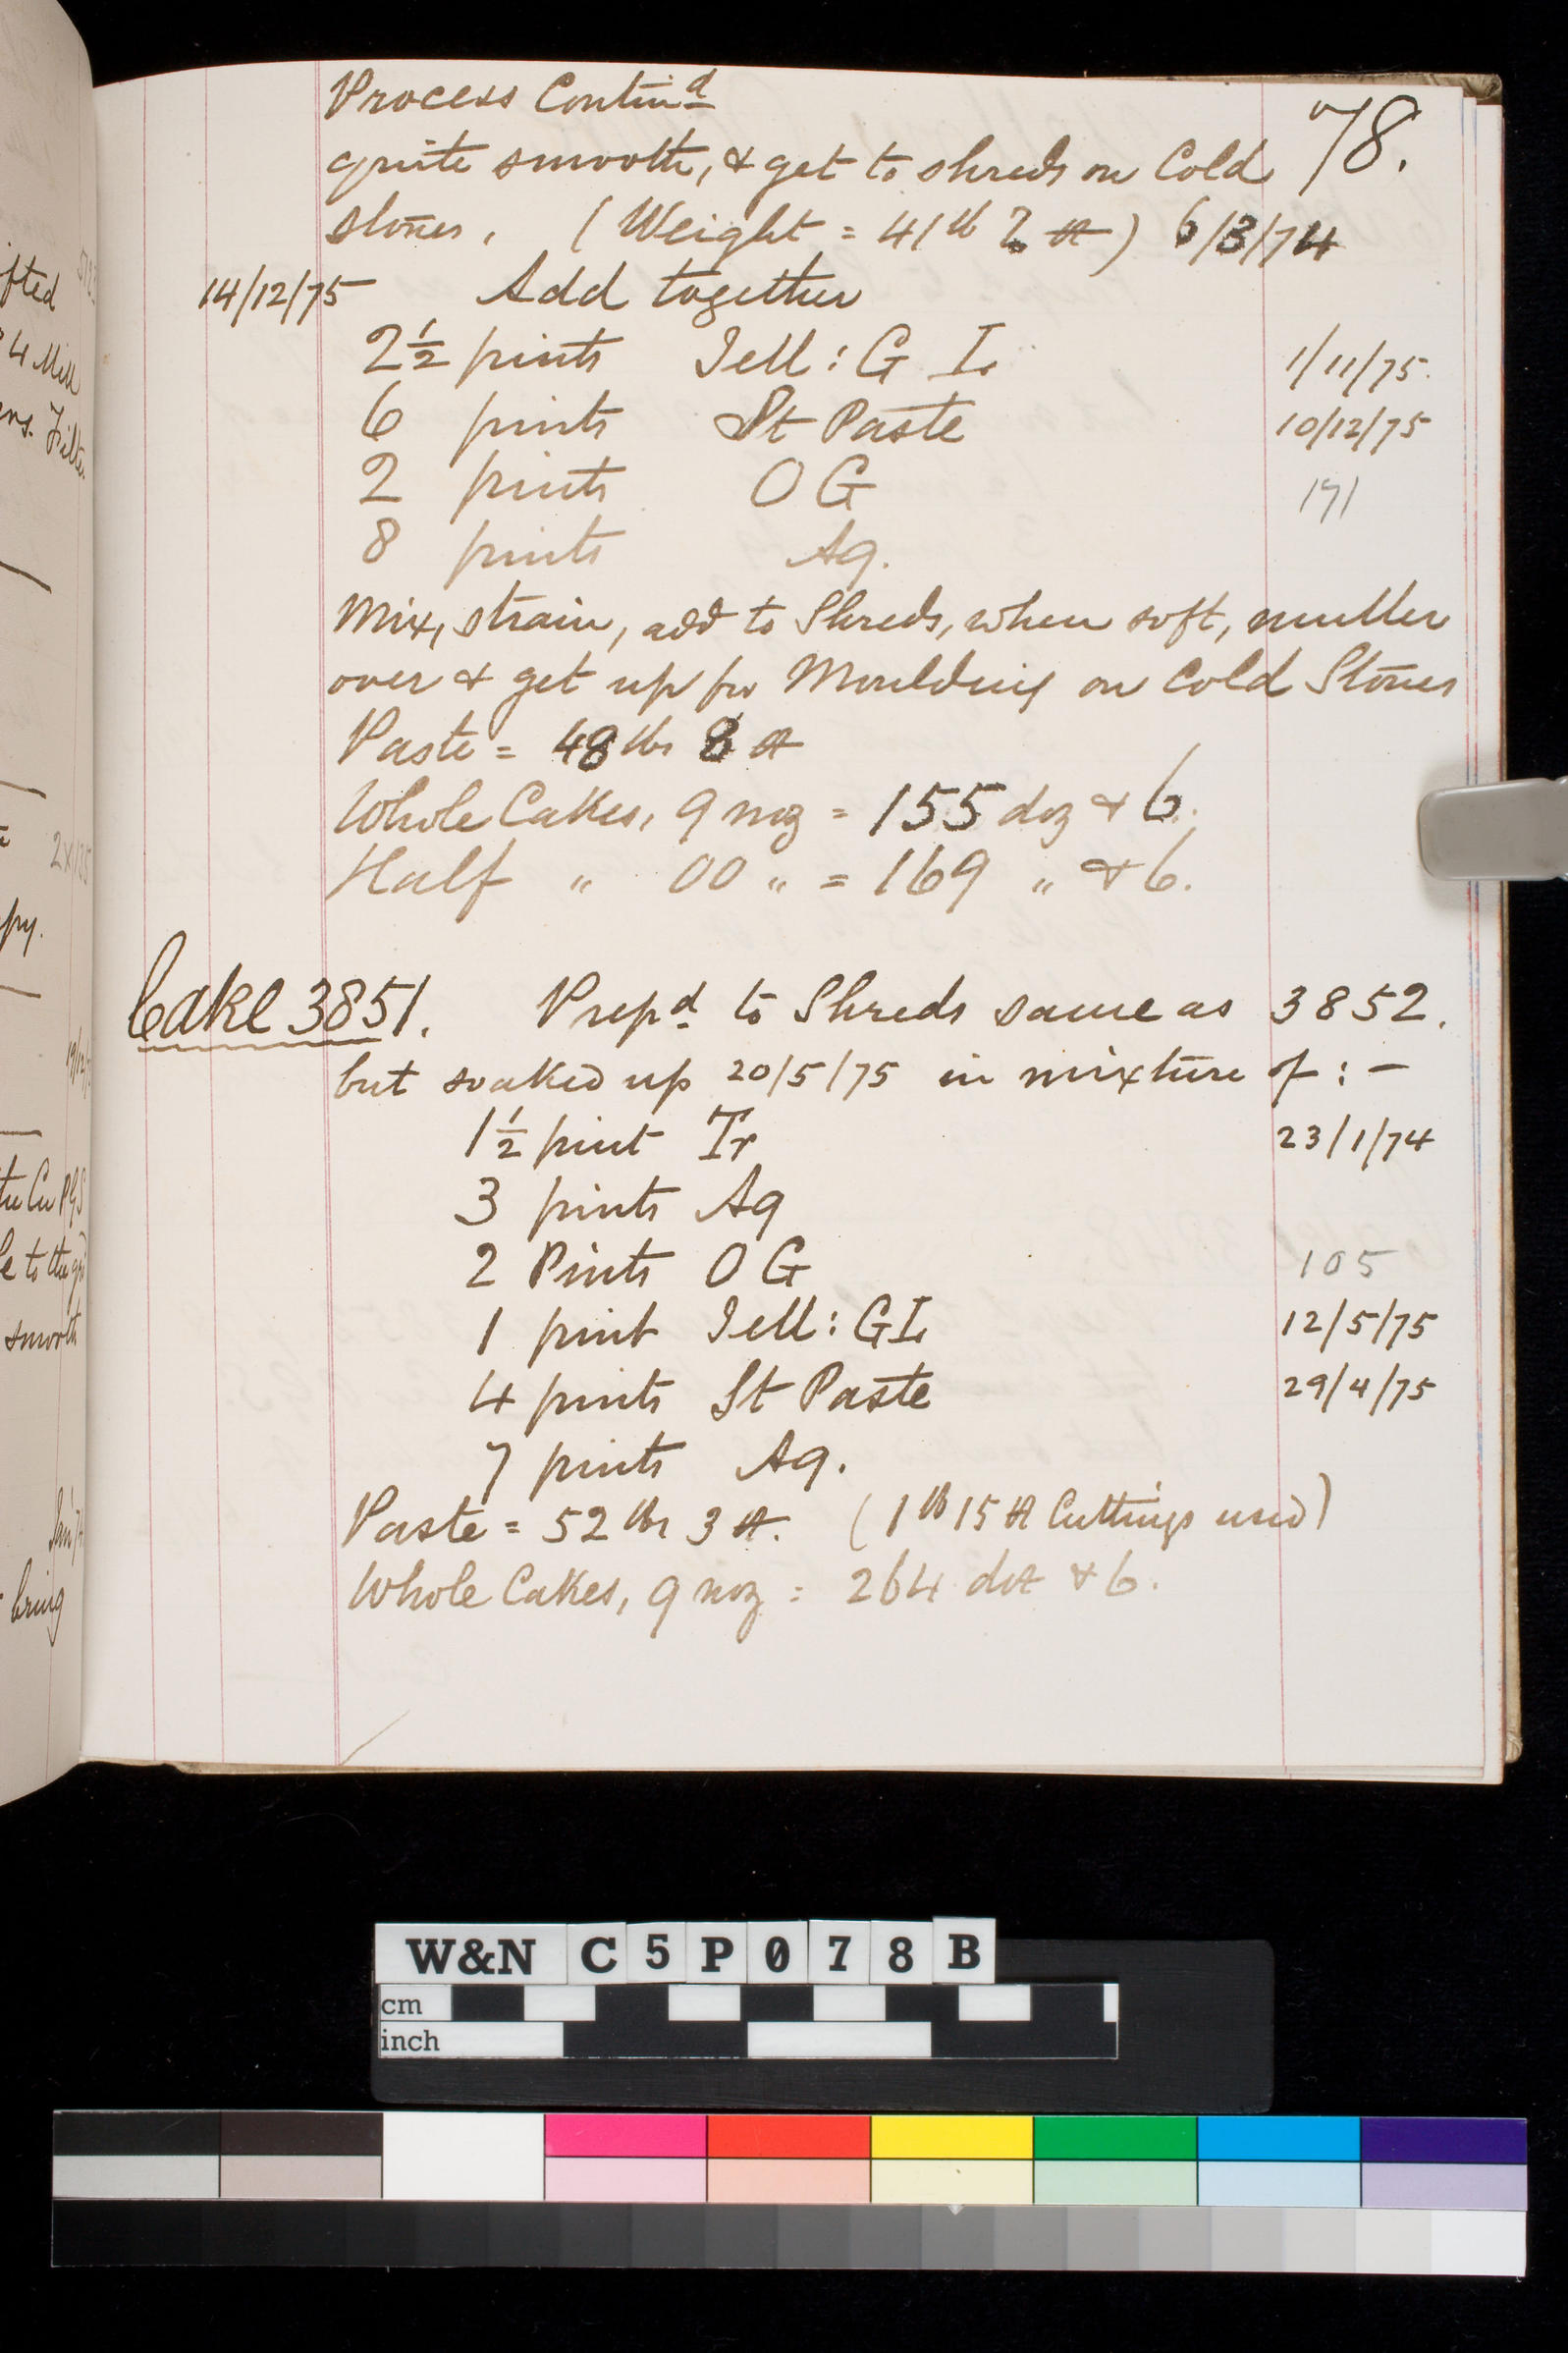 Process Contin^d
quite smooth, & get to shreds on Cold 78.
stones. ( Weight = 41 lb 2 oz ) 6/3/74
14/12/75 Add together
2½ pints Jell: G I. 1/11/75.
6 pints St Paste 10/12/75
2 pints O G 171
8 pints Aq.
Mix, strain, add to Shreds, when soft, muller
over & get up for Moulding on Cold Stones
Paste = 48 lbs 8 oz
Whole Cakes, 9 noz = 155 doz & 6.
Half " 00 " = 169 " & 6.
Cake 3851. Prep^d to Shreds same as 3852.
but soaked up 20/5/75 in mixture of : -
1½ pint Tr 23/1/74
3 pints Aq
2 Pints O G 105
1 pint Jell: GI. 12/5/75
4 pints St Paste 29/4/75
7 pints Aq.
Paste = 52 lbs 3 oz. ( 1 lb 15 oz Cuttings used )
Whole Cakes, 9 noz = 264 doz & 6.
W&N C 5 P 0 7 8 B
cm
inch